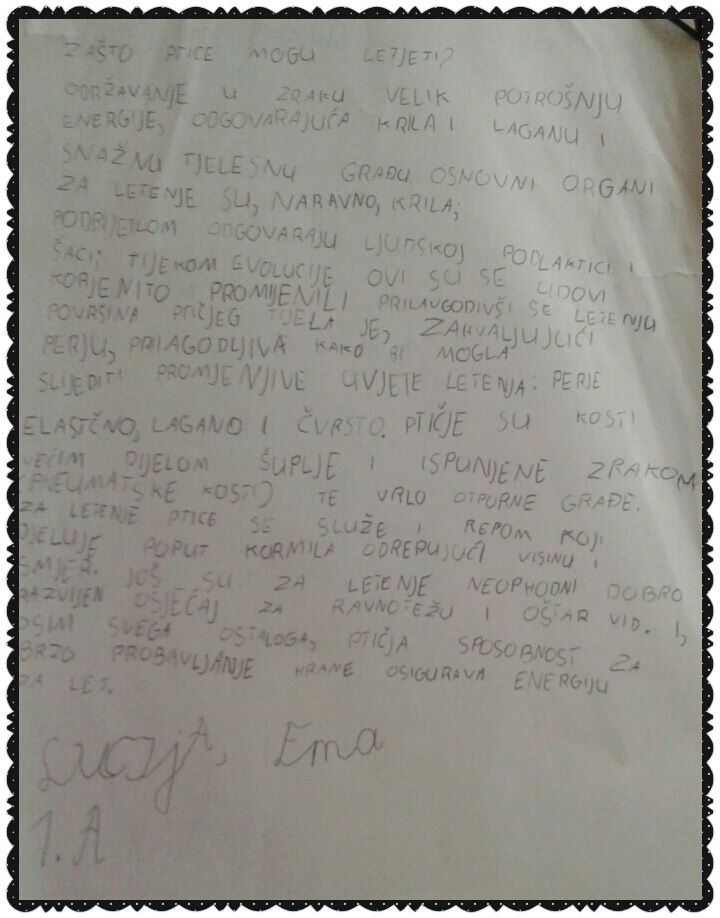 ZAŠTO PTICE MOGU LETJETI?
ODRŽAVANJE U ZRAKU VELIK POTROŠNJU
ENERGIJE, ODGOVARAJUĆA KRILA I LAGANU I
SNAŽNU TJELESNU GRAĐU. OSNOVNI ORGANI
ZA LETENJE SU, NARAVNO, KRILA;
PODRIJETLOM ODGOVARAJU LJUDSKOJ PODLAKTICI I
ŠACI; TIJEKOM EVOLUCIJE OVI SU SE UDOVI
KORJENITO PROMIJENILI PRILAVGODIVŠI SE LETENJU
POVRŠINA PTIČJEG TIJELA JE, ZAHVALJUJUĆI
PERJU, PRILAGODLJIVA KAKO BI MOGLA
SLIJEDITI PROMJENJIVE UVJETE LETENJA: PERJE
ELASTČNO, LAGANO I ČVRSTO. PTIČJE SU KOSTI
VEĆIM DIJELOM ŠUPLJE I ISPUNJENE ZRAKOM
(PNEUMATSKE KOSTI) TE VRLO OTPORNE GRAĐE.
ZA LETENJE PTICE SE SLUŽE I REPOM KOJI
DJELUJE POPUT KORMILA ODREPUJUĆI VISINU I
SMJER. JOŠ SU ZA LETENJE NEOPHODNI DOBRO
RAZVIJEN OSJEĆAJ ZA RAVNOTEŽU I OŠTAR VID. I,
OSIM SVEGA OSTALOGA, PTIČJA SPOSOBNOST ZA
BRZO PROBAVLJANJE HRANE OSIGURAVA ENERGIJU
ZA LET.
LUCIJA, Ema
1. A